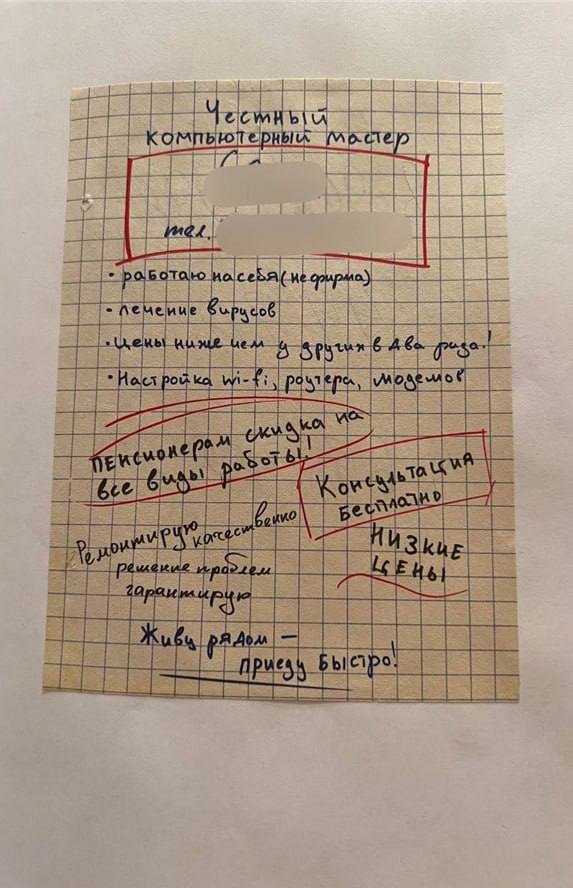 Честный
компьютерный мастер
тел.
• работаю на себя (не фирма)
• лечение вирусов
• Цены ниже чем у других в два раза!
• Настройка wi-fi, роутера, модемов
Пенсионерам скидка на
все виды работы!
Консультация
Бесплатно
Ремонтирую
качественно
решение проблем
гарантирую
НИЗКИЕ
ЦЕНЫ
Живу рядом —
приеду быстро!